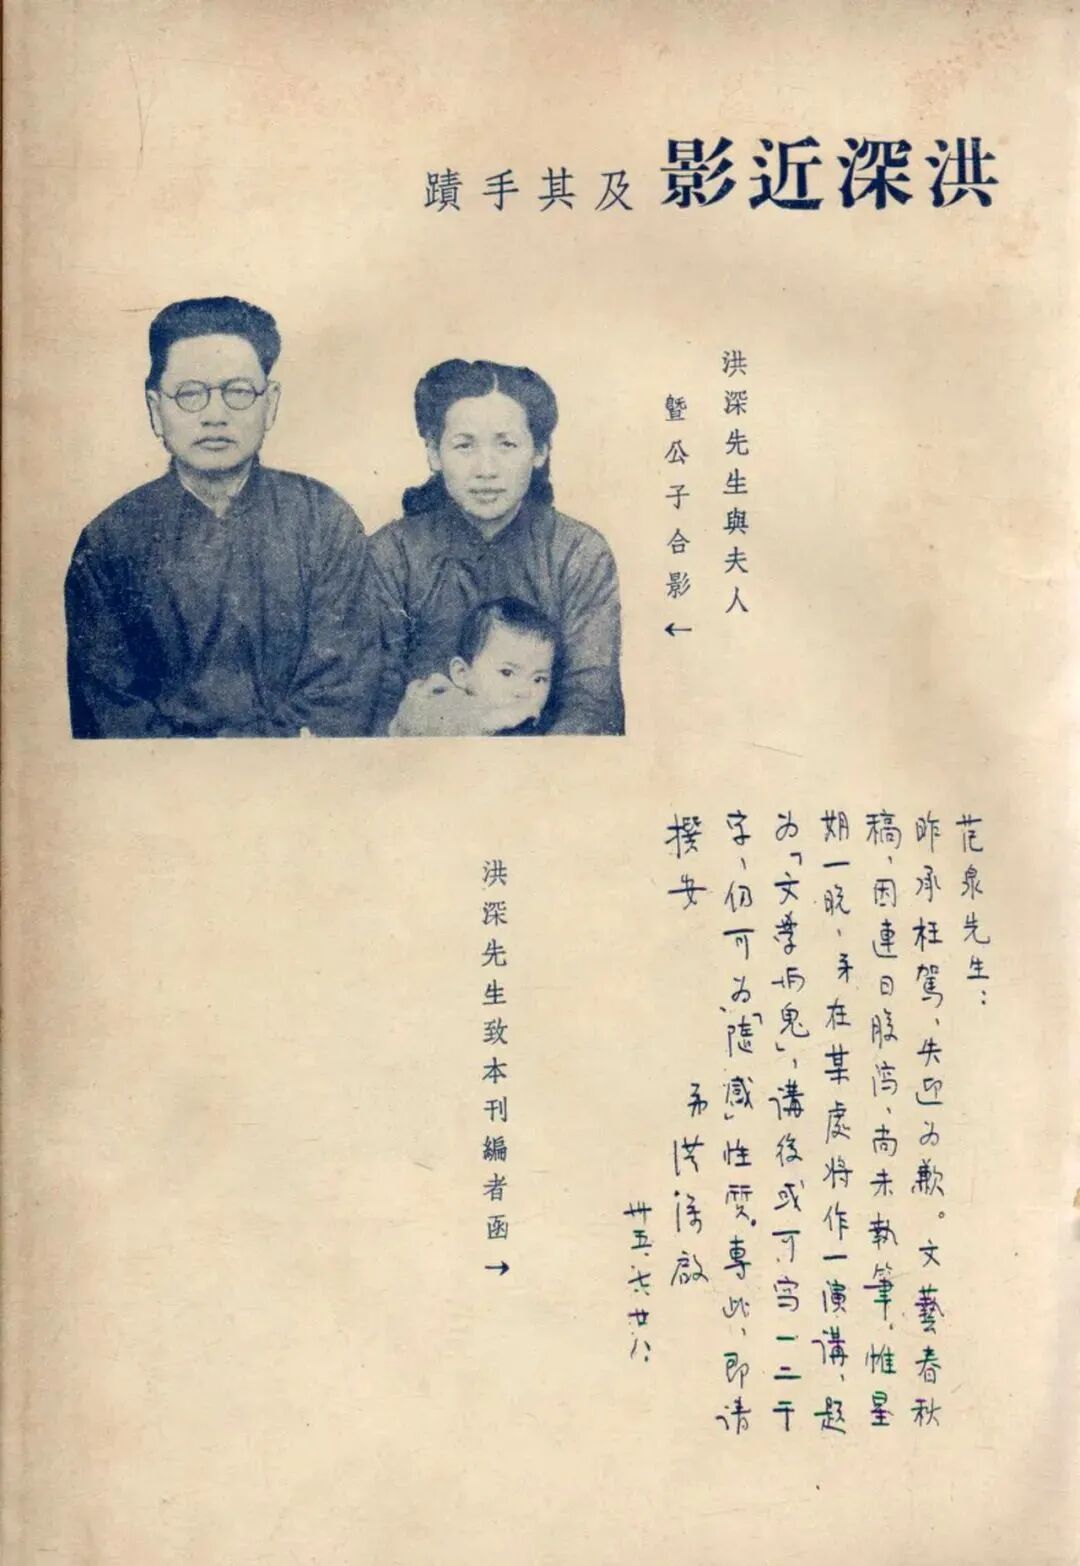 洪深近影及其手蹟
洪深先生與夫人
暨公子合影←
范泉先生：
昨承枉駕、失迎为歉。文藝春秋
稿、因連日腹瀉、尚未執筆。惟星
期一晚、弟在某處将作一演講、題
为「文學与鬼」、講後或可写一二千
字、仍可为「随感」性質。專此、即请
撰安
弟洪深啟
卅五、六廿八、
洪深先生致本刊編者函→